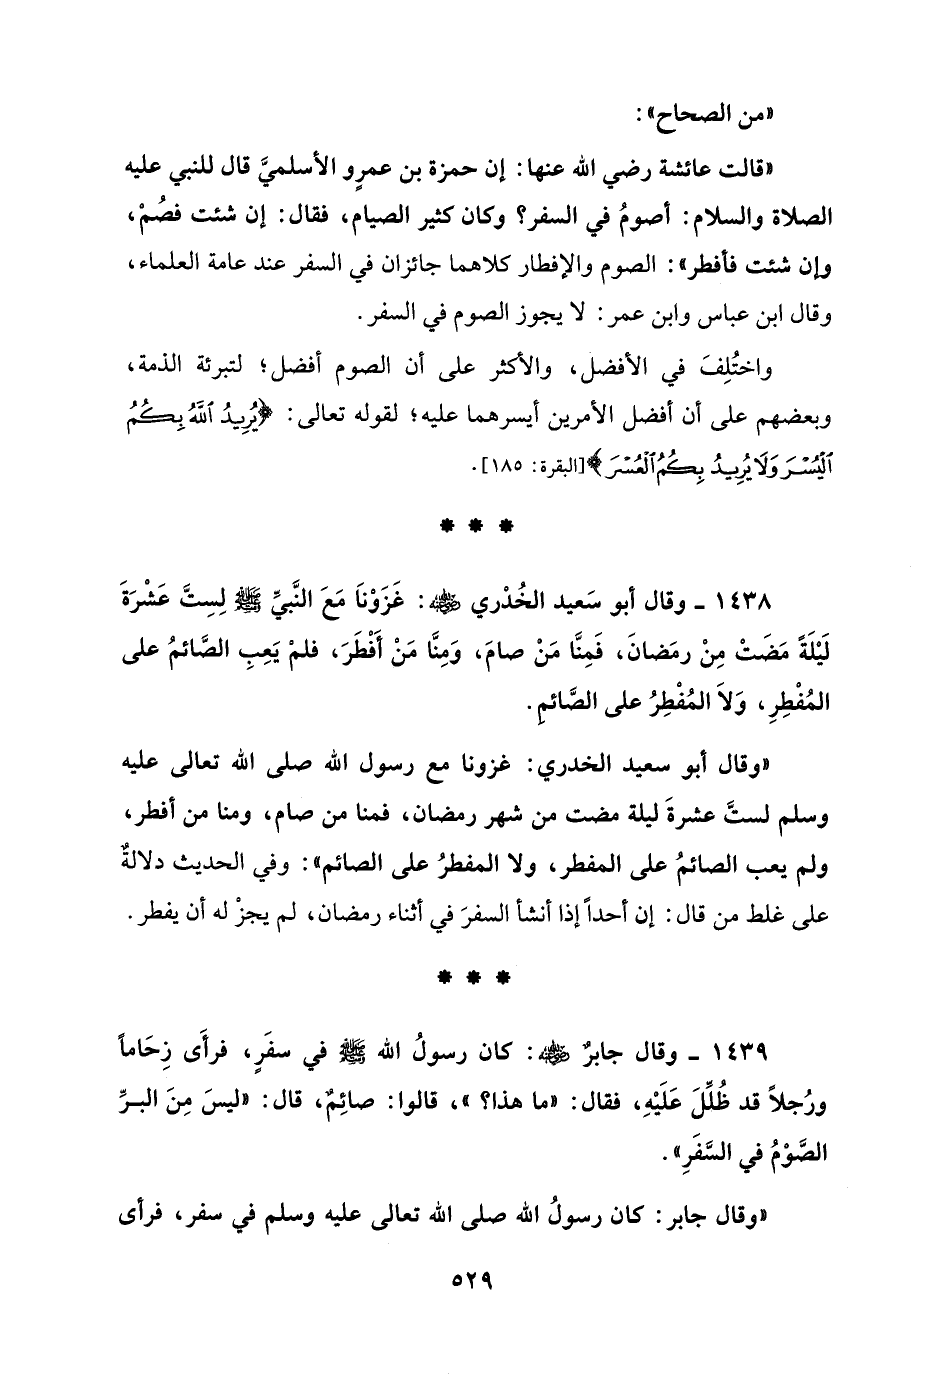 «من الصحاح»:
«قالت عائشة رضي الله عنها: إن حمزة بن عمرٍو الأسلميَّ قال للنبي عليه
الصلاة والسلام: أصومُ في السفر؟ وكان كثير الصيام، فقال: إن شئت فصُمْ،
وإن شئت فأفطر»: الصوم والإفطار كلاهما جائزان في السفر عند عامة العلماء،
وقال ابن عباس وابن عمر: لا يجوز الصوم في السفر.
واختُلِفَ في الأفضل، والأكثر على أن الصوم أفضل؛ لتبرئة الذمة،
وبعضهم على أن أفضل الأمرين أيسرهما عليه؛ لقوله تعالى: ﴿يُرِيدُ ٱللَّهُ بِكُمُ
ٱلْيُسْرَ وَلَا يُرِيدُ بِكُمُ ٱلْعُسْرَ﴾ [البقرة: ١٨٥].
* * *
١٤٣٨ ـ وقال أبو سَعيد الخُدْري ﵁: غَزَوْنا مَعَ النَّبيِّ ﷺ لِستَّ عَشْرَةَ
لَيْلَةً مَضَتْ مِنْ رمَضانَ، فَمِنَّا مَنْ صامَ، وَمِنَّا مَنْ أَفْطَرَ، فلمْ يَعِبِ الصَّائمُ على
المُفْطِرِ، وَلاَ المُفْطِرُ على الصَّائمِ.
«وقال أبو سعيد الخدري: غزونا مع رسول الله صلى الله تعالى عليه
وسلم لستَّ عشرةَ ليلة مضت من شهر رمضان، فمنا من صام، ومنا من أفطر،
ولم يعب الصائمُ على المفطر، ولا المفطرُ على الصائم»: وفي الحديث دلالةٌ
على غلط من قال: إن أحداً إذا أنشأ السفرَ في أثناء رمضان، لم يجزْ له أن يفطر.
* * *
١٤٣٩ ـ وقال جابرٌ ﵁: كان رسولُ الله ﷺ في سفَرٍ، فرأَى زِحَاماً
ورُجلاً قد ظُلِّلَ عَلَيْهِ، فقال: «ما هذا؟»، قالوا: صائِمٌ، قال: «ليسَ مِنَ البـرِّ
الصَّوْمُ في السَّفَرِ».
«وقال جابر: كان رسولُ الله صلى الله تعالى عليه وسلم في سفر، فرأى
٥٢٩